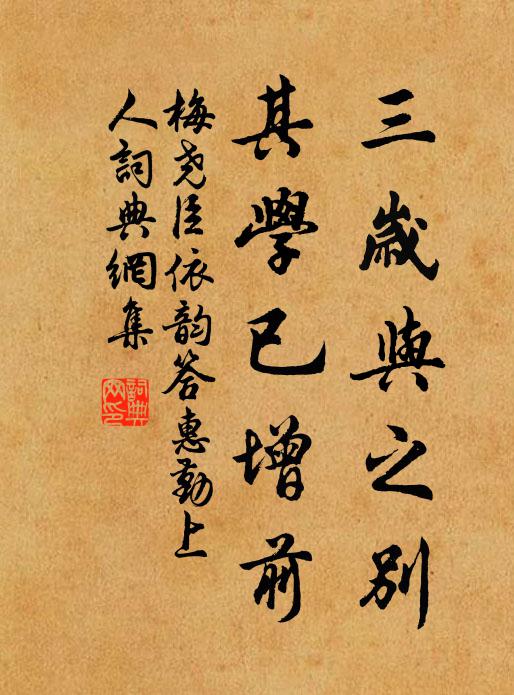 三歲與之別
其學已增前
梅堯臣依韵答惠勤上
人詞典網集
詞典网印